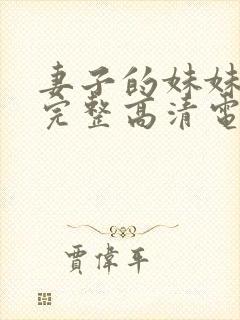 妻子的妹妹
完整高清電
賈偉平